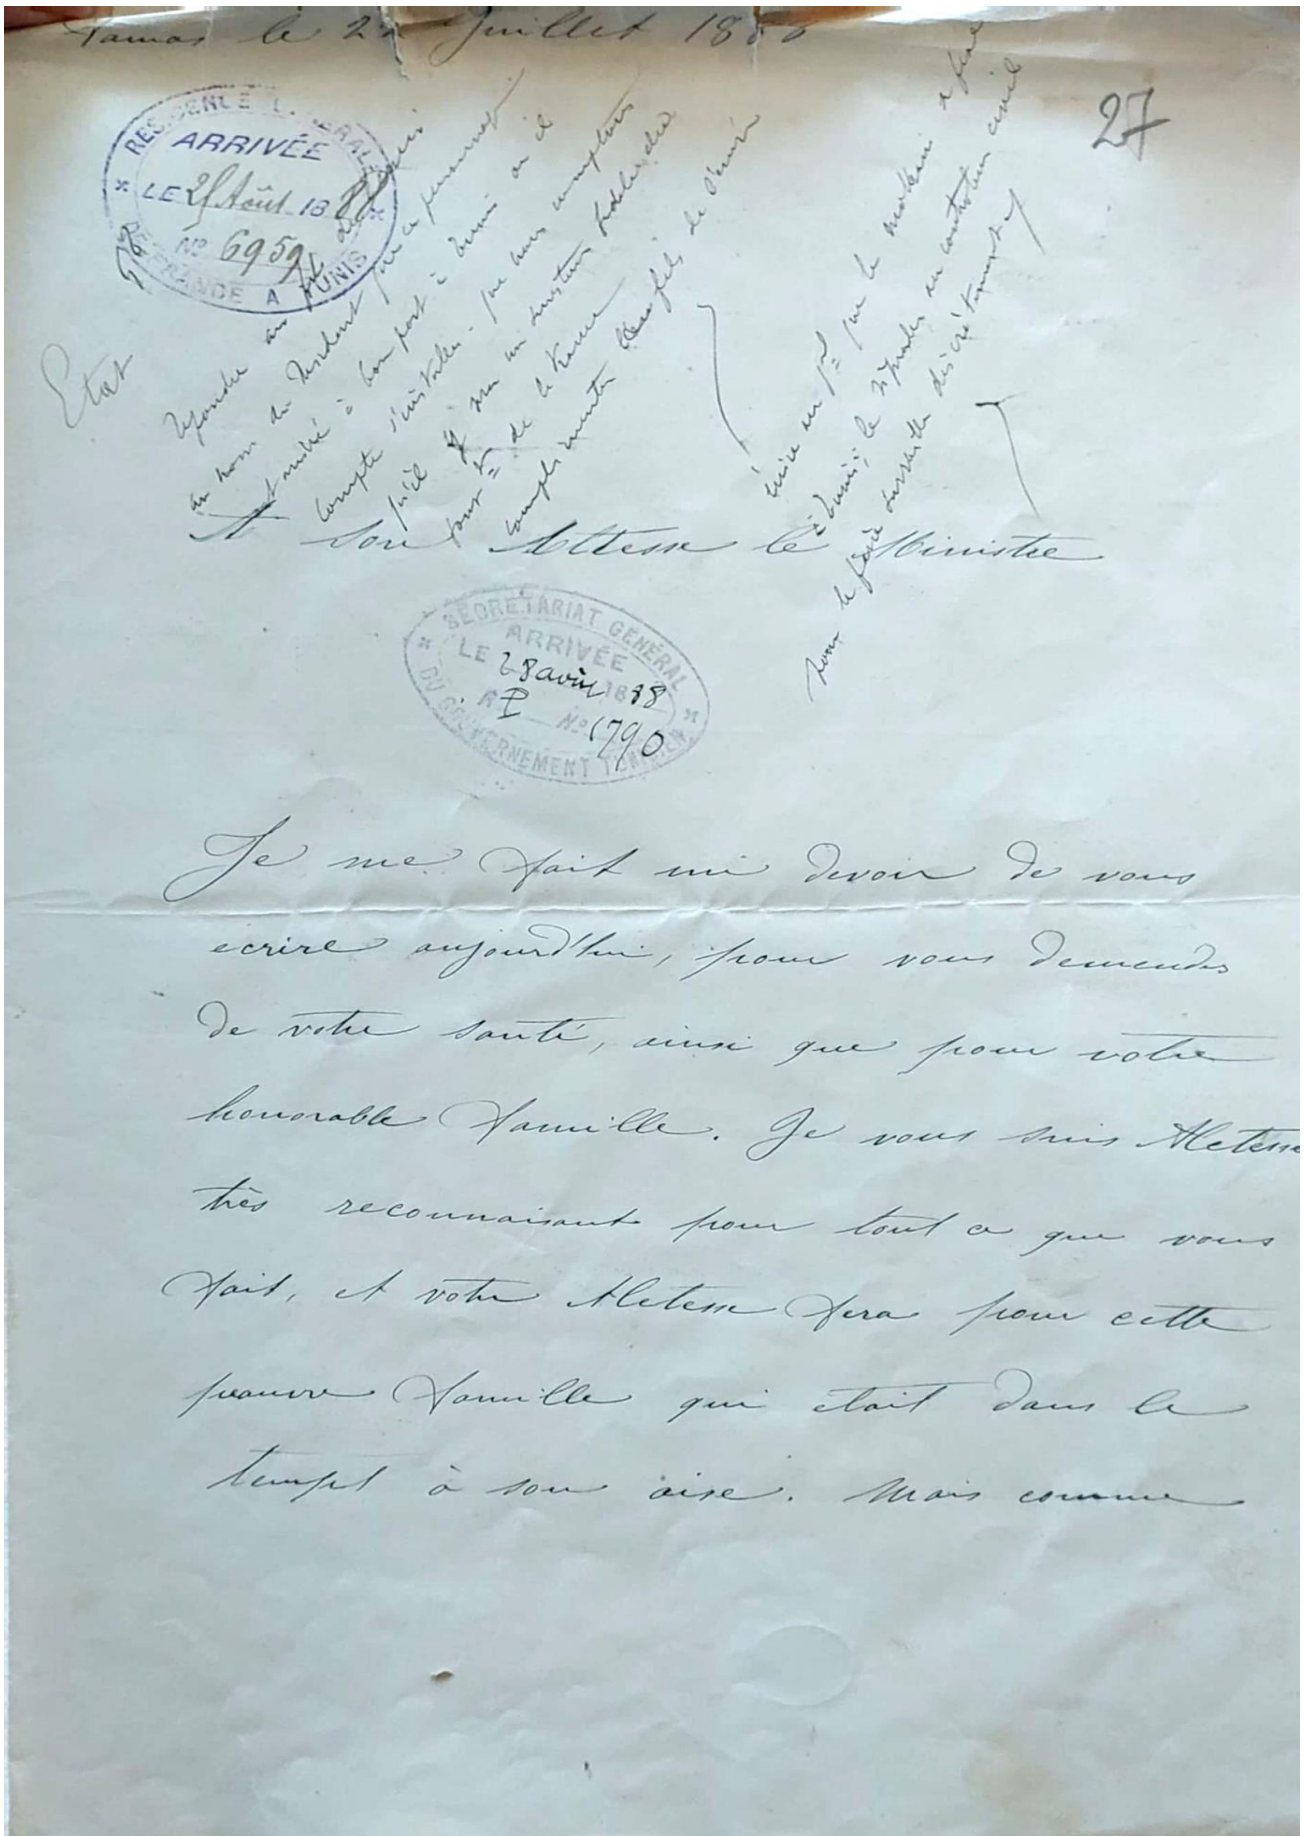 Damas le 22 Juillet 1888
27
RESIDENCE GENERALE
ARRIVÉE
LE 25 Août 1888
Nº 6959
DE FRANCE A TUNIS
Etat
Répondre au
au nom du Résident que ce personnage
est arrivé à bon port à Tunis où il
compte s'installer. que nous comptons
qu'il sera un serviteur
de la France
complimenter les fils de l'émir
à Tunis; le signaler au contrôleur civil
pour le faire surveiller discrètement
A Son Altesse le Ministre
SECRÉTARIAT GÉNÉRAL
ARRIVÉE
LE 28 août 1888
Nº 1790
DU GOUVERNEMENT TUNISIEN
Je me fait un devoir de vous
ecrire aujourd'hui, pour vous demender
de votre santé, ainsi que pour votre
honorable famille. Je vous suis Altesse
très reconnaisant pour tout ce que vous
fait, et votre Altesse fera pour cette
pauvre famille qui etait dans le
tempt à son aise. Mais comme